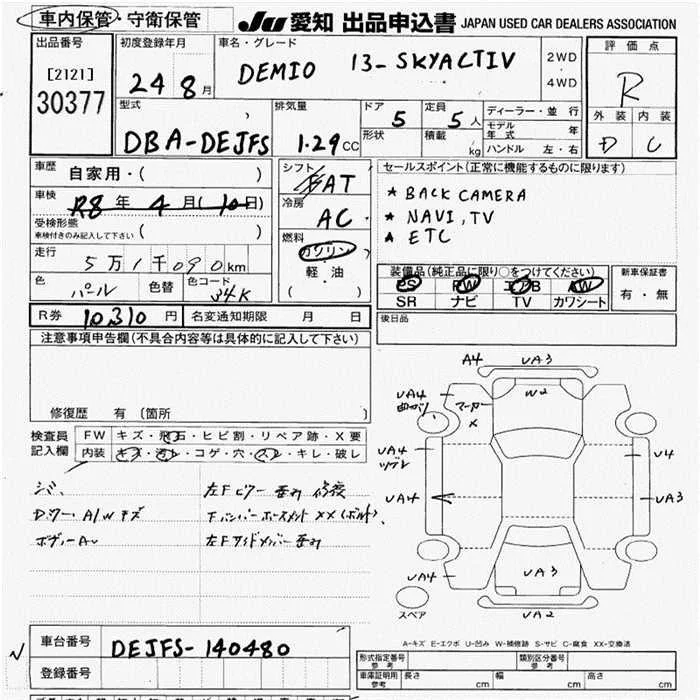 車内保管・守衛保管
JU 愛知 出品申込書 JAPAN USED CAR DEALERS ASSOCIATION
出品番号
[2121]
30377
初度登録年月
24 8月
車名・グレード
DEMIO 13-SKYACTIV
2WD
4WD
評価点
R
外装 内装
D C
型式
DBA-DEJFS
排気量
1.29CC
ドア
5
形状
定員
5人
積載
kg
ディーラー・並行
モデル年式 年
ハンドル 左・右
車歴
自家用・( )
車検
R8年 4月(10日)
受検形態
車検付きのみ記入して下さい
( )
走行
5万1千090km
色
パール
色替
色コード
34K
シフト
FAT
冷房
AC
燃料
ガソリン
軽・油
( )
セールスポイント(正常に機能するものに限ります)
* BACK CAMERA
* NAVI, TV
* ETC
装備品(純正品に限り○をつけてください)
PS PW エアB AW
SR ナビ TV カワシート
新車保証書
有・無
R券 10310円
名変通知期限 月 日
後日品
注意事項申告欄(不具合内容等は具体的に記入して下さい)
修復歴 有(箇所 )
検査員
記入欄
FW キズ・飛石・ヒビ割・リペア跡・X要
内装 キズ・汚レ・コゲ・穴・スレ・キレ・破レ
シミ
A/W キズ
ボディー
左F
修復
XX(ボルト)
左F
A4 UA3
UA4
曲がり
マーカー
X
W2
UA4
ツブレ
U4
UA4
UA3
UA4
UA3
UA2
スペア
A-キズ E-エクボ U-凹み W-補修跡 S-サビ C-腐食 XX-交換済
車台番号
DEJFS-140480
登録番号
形式指定番号
参考
類別区分番号
参考
車庫証明用
参考
長さ cm
幅 cm
高さ cm